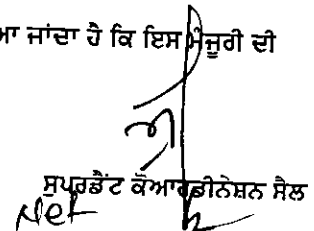 ਆ ਜਾਂਦਾ ਹੈ ਕਿ ਇਸ ਮੰਜੂਰੀ ਦੀ
ਸੁਪਰਡੈਂਟ ਕੋਆਰਡੀਨੇਸ਼ਨ ਸੈਲ